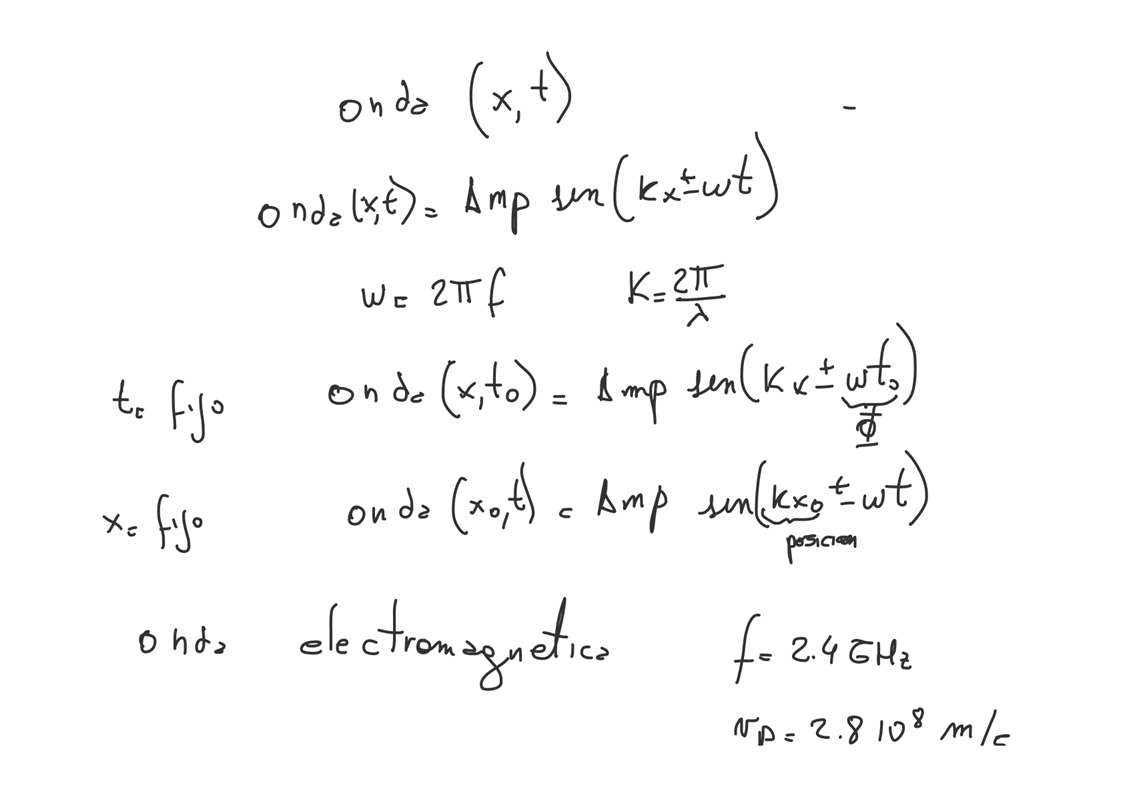 onda (x, t) -
onda(x,t) = Amp sen(Kx ± wt)
w = 2πf K = 2π/λ
t = fijo onda (x,t₀) = Amp sen(Kx ± wt₀)
ϕ
x = fijo onda (x₀,t) = Amp sen(kx₀ ± wt)
posicion
onda electromagnetica f = 2.4 GHz
vp = 2.8 10⁸ m/s